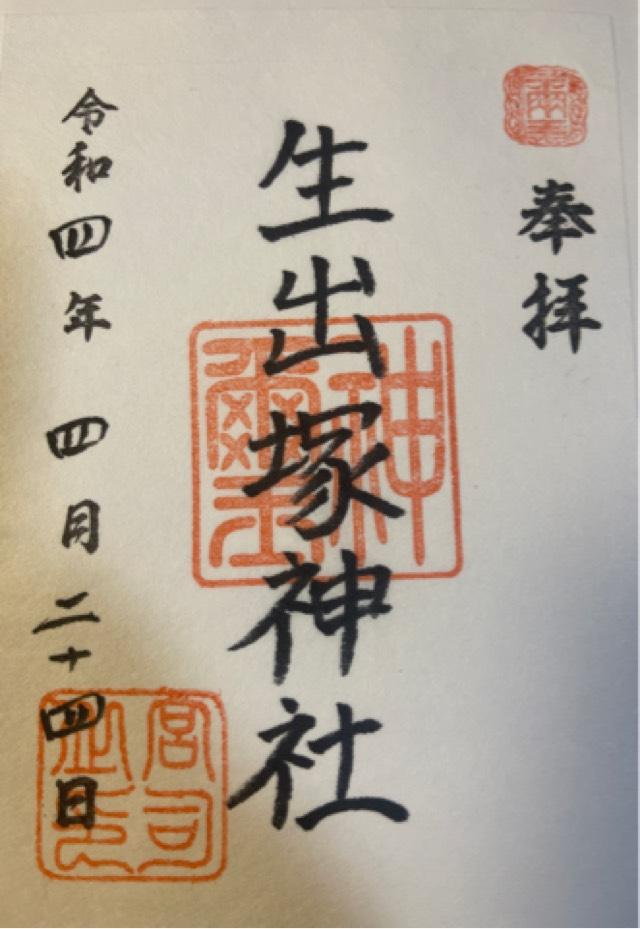 奉拝
生出塚神社
神璽
令和四年 四月二十四日
宮司之印